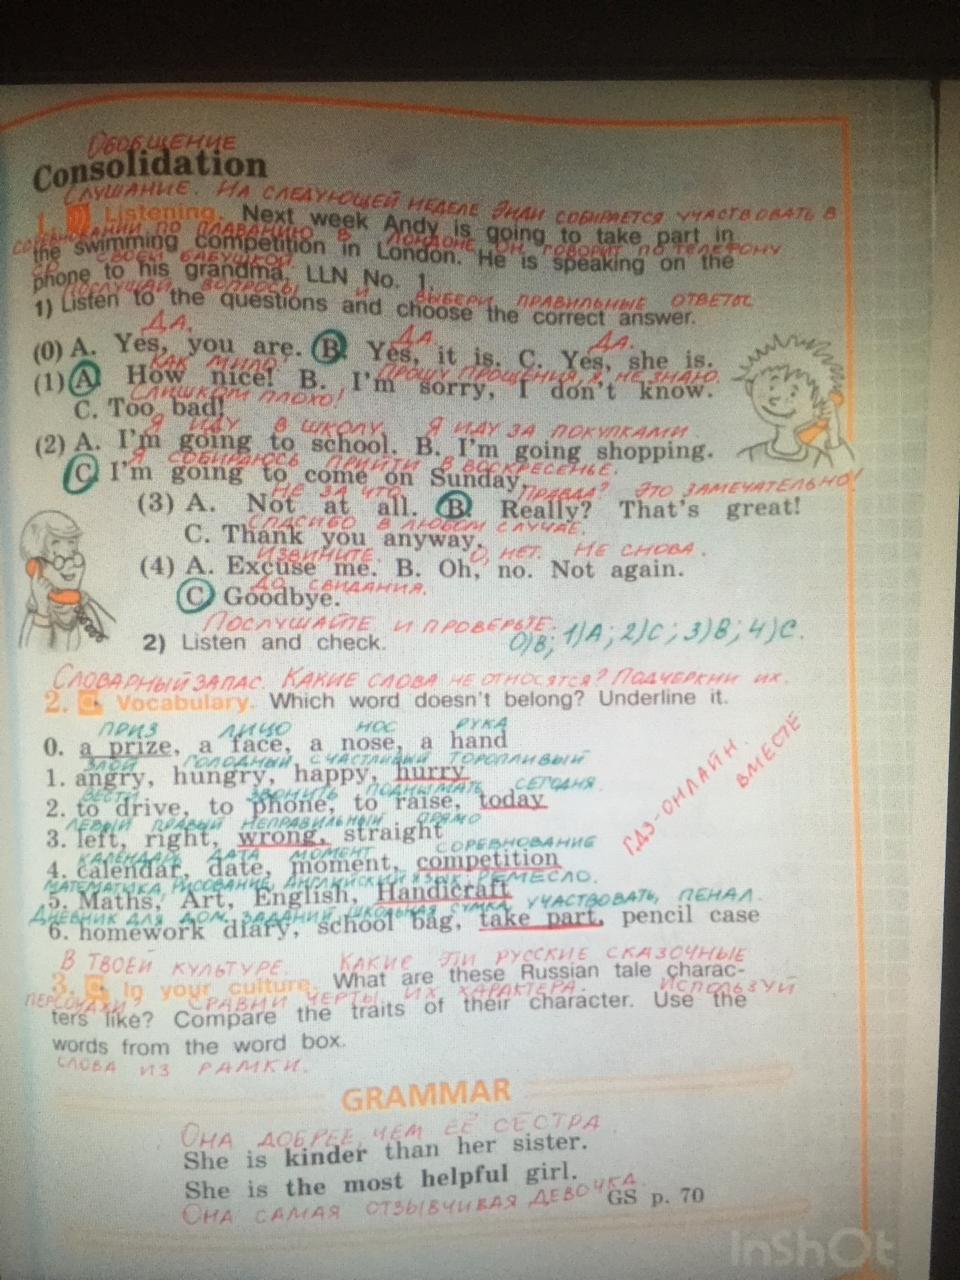 ОБОБЩЕНИЕ
Consolidation
СЛУШАНИЕ. НА СЛЕДУЮЩЕЙ НЕДЕЛЕ ЭНДИ СОБИРАЕТСЯ УЧАСТВОВАТЬ В
1. Listening. Next week Andy is going to take part in
СОРЕВНОВАНИИ ПО ПЛАВАНИЮ В ЛОНДОНЕ. ОН ГОВОРИТ ПО ТЕЛЕФОНУ
the swimming competition in London. He is speaking on the
СО СВОЕЙ БАБУШКОЙ.
phone to his grandma. LLN No. 1.
ПОСЛУШАЙ ВОПРОСЫ И ВЫБЕРИ ПРАВИЛЬНЫЕ ОТВЕТЫ
1) Listen to the questions and choose the correct answer.
ДА. ДА. ДА.
(0) A. Yes, you are. B. Yes, it is. C. Yes, she is.
КАК МИЛО! ПРОШУ ПРОЩЕНИЯ, Я НЕ ЗНАЮ.
(1) A. How nice! B. I'm sorry, I don't know.
СЛИШКОМ ПЛОХО!
C. Too bad!
Я ИДУ В ШКОЛУ. Я ИДУ ЗА ПОКУПКАМИ
(2) A. I'm going to school. B. I'm going shopping.
Я СОБИРАЮСЬ ПРИЙТИ В ВОСКРЕСЕНЬЕ.
C. I'm going to come on Sunday.
НЕ ЗА ЧТО. ПРАВДА? ЭТО ЗАМЕЧАТЕЛЬНО!
(3) A. Not at all. B. Really? That's great!
СПАСИБО В ЛЮБОМ СЛУЧАЕ.
C. Thank you anyway.
ИЗВИНИТЕ. О, НЕТ. НЕ СНОВА.
(4) A. Excuse me. B. Oh, no. Not again.
ДО СВИДАНИЯ.
C. Goodbye.
ПОСЛУШАЙТЕ И ПРОВЕРЬТЕ.
2) Listen and check. 0)B; 1)A; 2)C; 3)B; 4)C.
СЛОВАРНЫЙ ЗАПАС. КАКИЕ СЛОВА НЕ ОТНОСЯТСЯ? ПОДЧЕРКНИ ИХ.
2. Vocabulary. Which word doesn't belong? Underline it.
ПРИЗ ЛИЦО НОС РУКА
0. a prize, a face, a nose, a hand
ЗЛОЙ ГОЛОДНЫЙ СЧАСТЛИВЫЙ ТОРОПЛИВЫЙ
1. angry, hungry, happy, hurry
ВЕСТИ ЗВОНИТЬ ПОДНИМАТЬ СЕГОДНЯ.
2. to drive, to phone, to raise, today
ЛЕВЫЙ ПРАВЫЙ НЕПРАВИЛЬНЫЙ ПРЯМО
3. left, right, wrong, straight
КАЛЕНДАРЬ ДАТА МОМЕНТ СОРЕВНОВАНИЕ
4. calendar, date, moment, competition
МАТЕМАТИКА, РИСОВАНИЕ, АНГЛИЙСКИЙ ЯЗЫК, РЕМЕСЛО.
5. Maths, Art, English, Handicraft
ДНЕВНИК ДЛЯ ДОМ. ЗАДАНИЙ, ШКОЛЬНАЯ СУМКА, УЧАСТВОВАТЬ, ПЕНАЛ.
6. homework diary, school bag, take part, pencil case
ГДЗ-ОНЛАЙН.
ВМЕСТЕ
В ТВОЕЙ КУЛЬТУРЕ. КАКИЕ ЭТИ РУССКИЕ СКАЗОЧНЫЕ
3. In your culture. What are these Russian tale charac-
ПЕРСОНАЖИ? СРАВНИ ЧЕРТЫ ИХ ХАРАКТЕРА. ИСПОЛЬЗУЙ
ters like? Compare the traits of their character. Use the
words from the word box.
СЛОВА ИЗ РАМКИ.
GRAMMAR
ОНА ДОБРЕЕ, ЧЕМ ЕЁ СЕСТРА
She is kinder than her sister.
She is the most helpful girl.
ОНА САМАЯ ОТЗЫВЧИВАЯ ДЕВОЧКА.
GS p. 70
InShOt